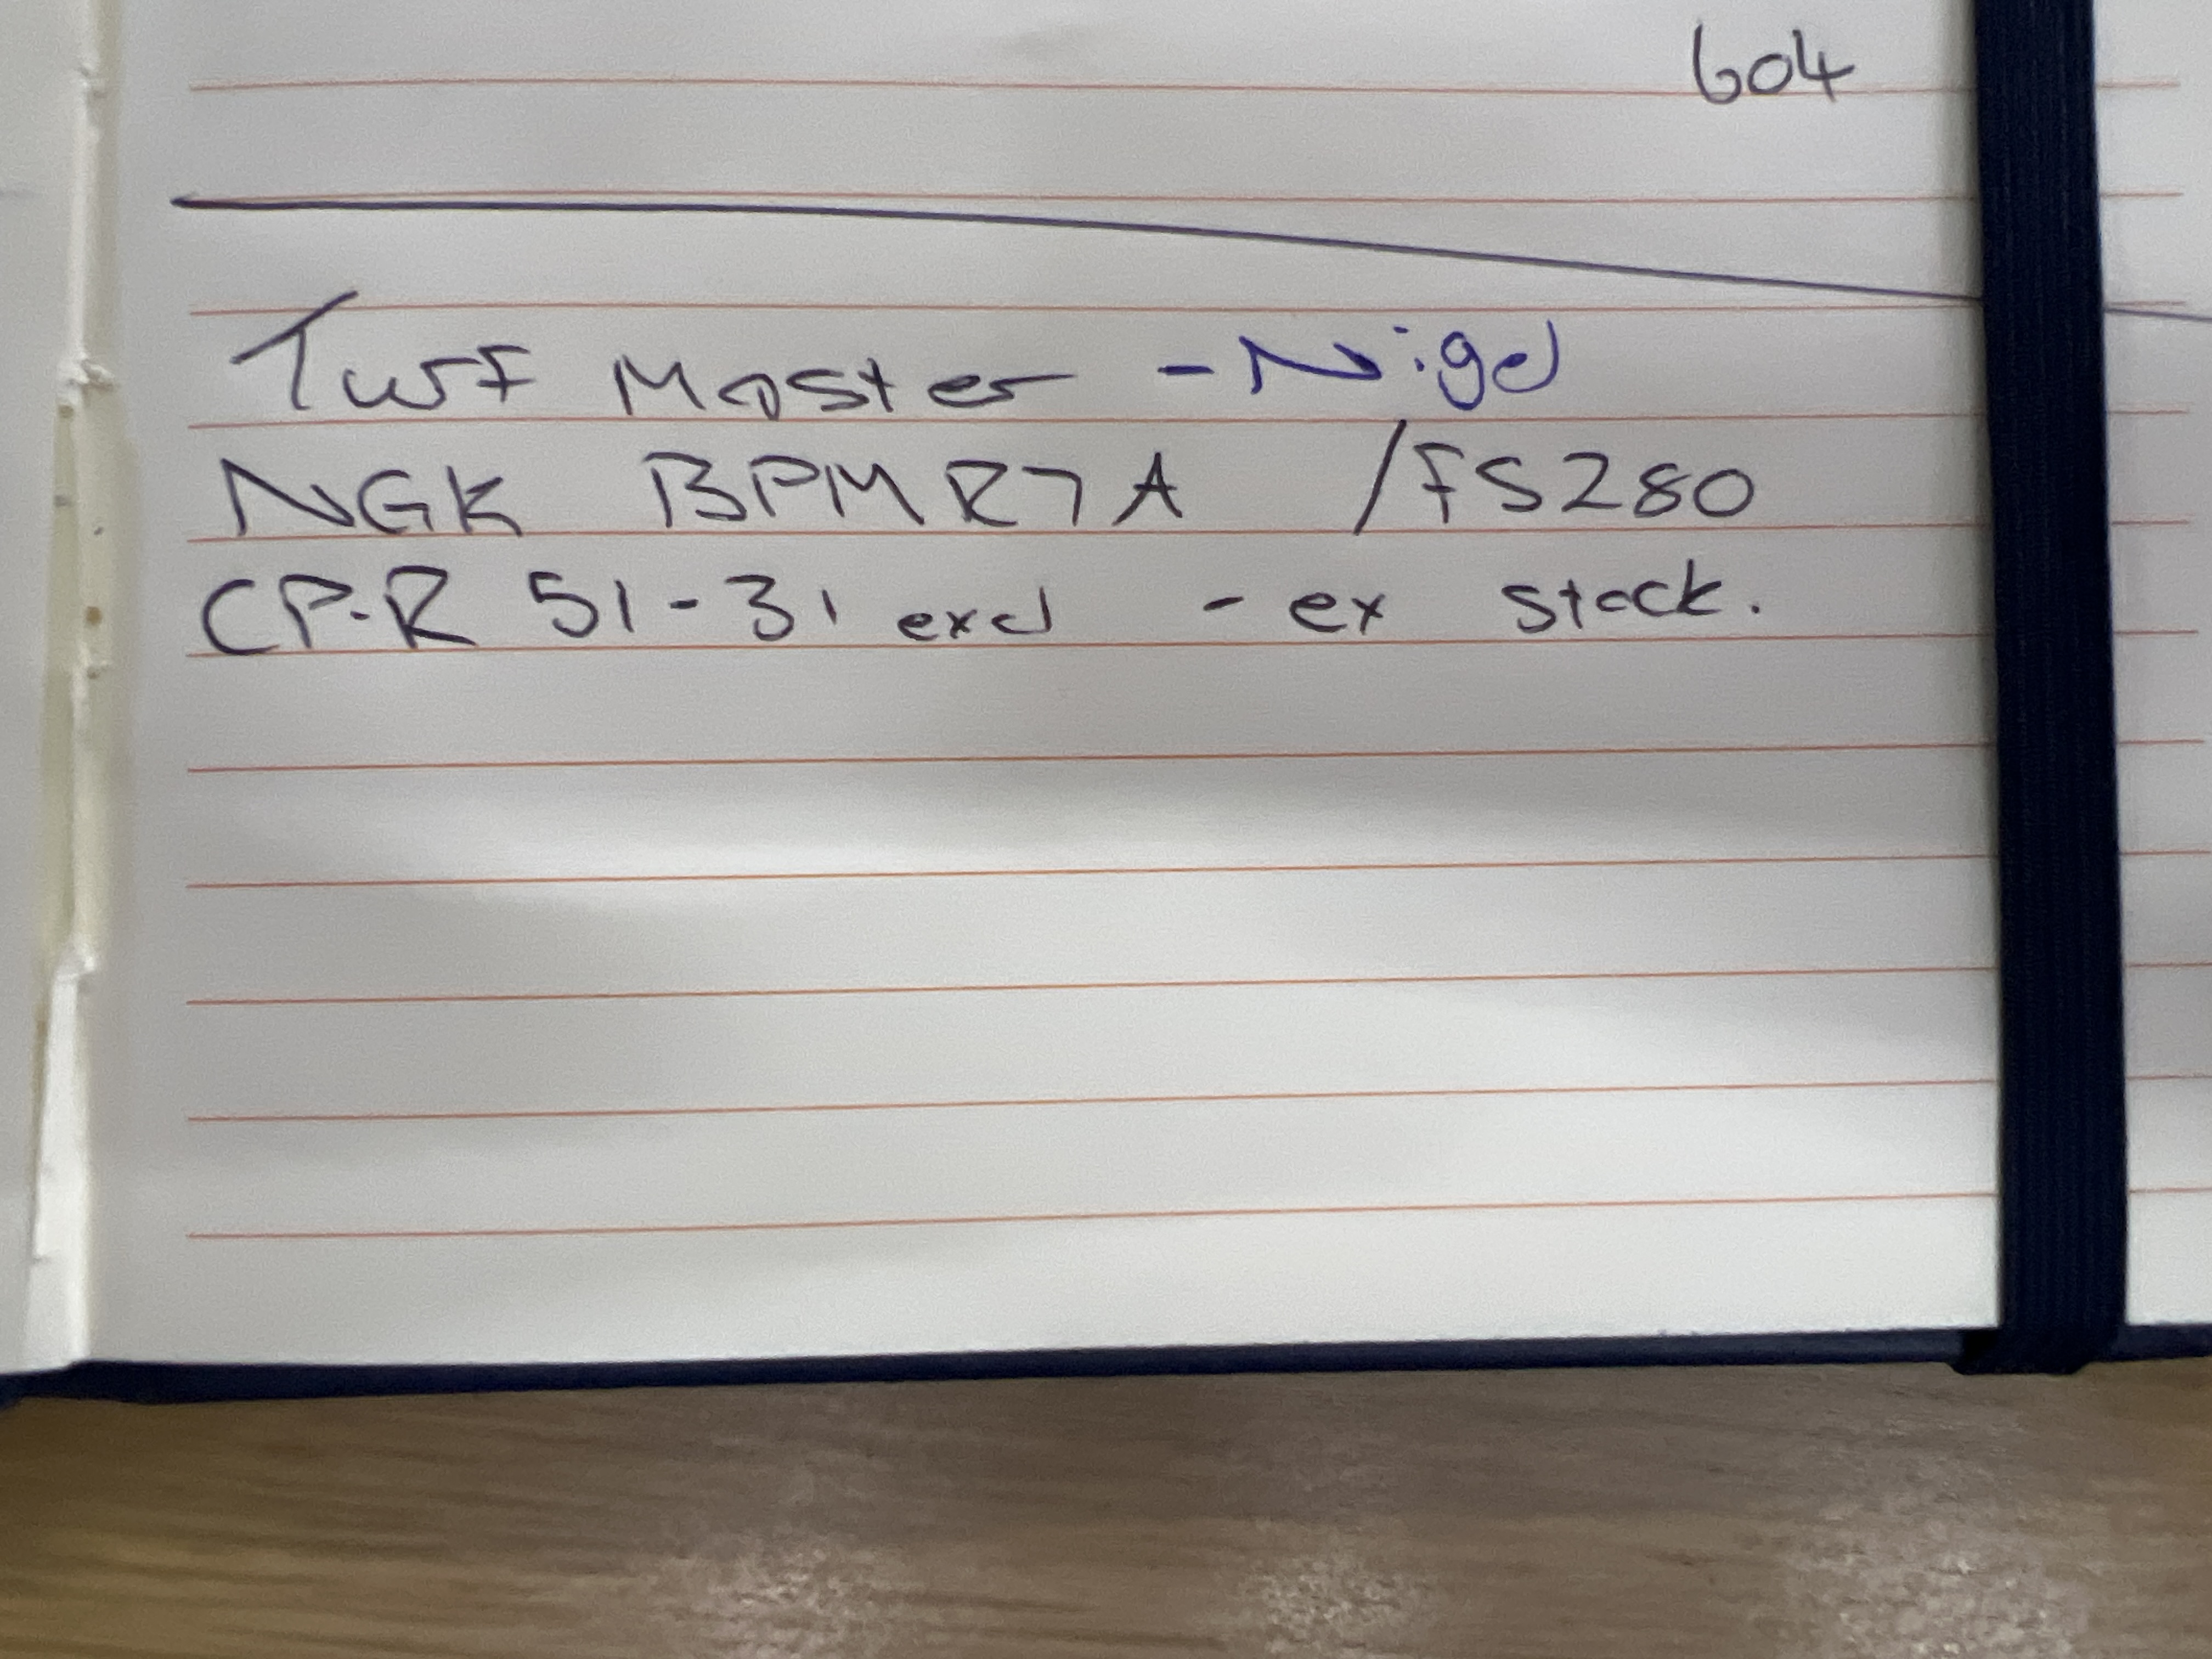 604
Turf Master - Nigel
NGK BPMR7A /FS280
CP.R 51-31 excl - ex stock.